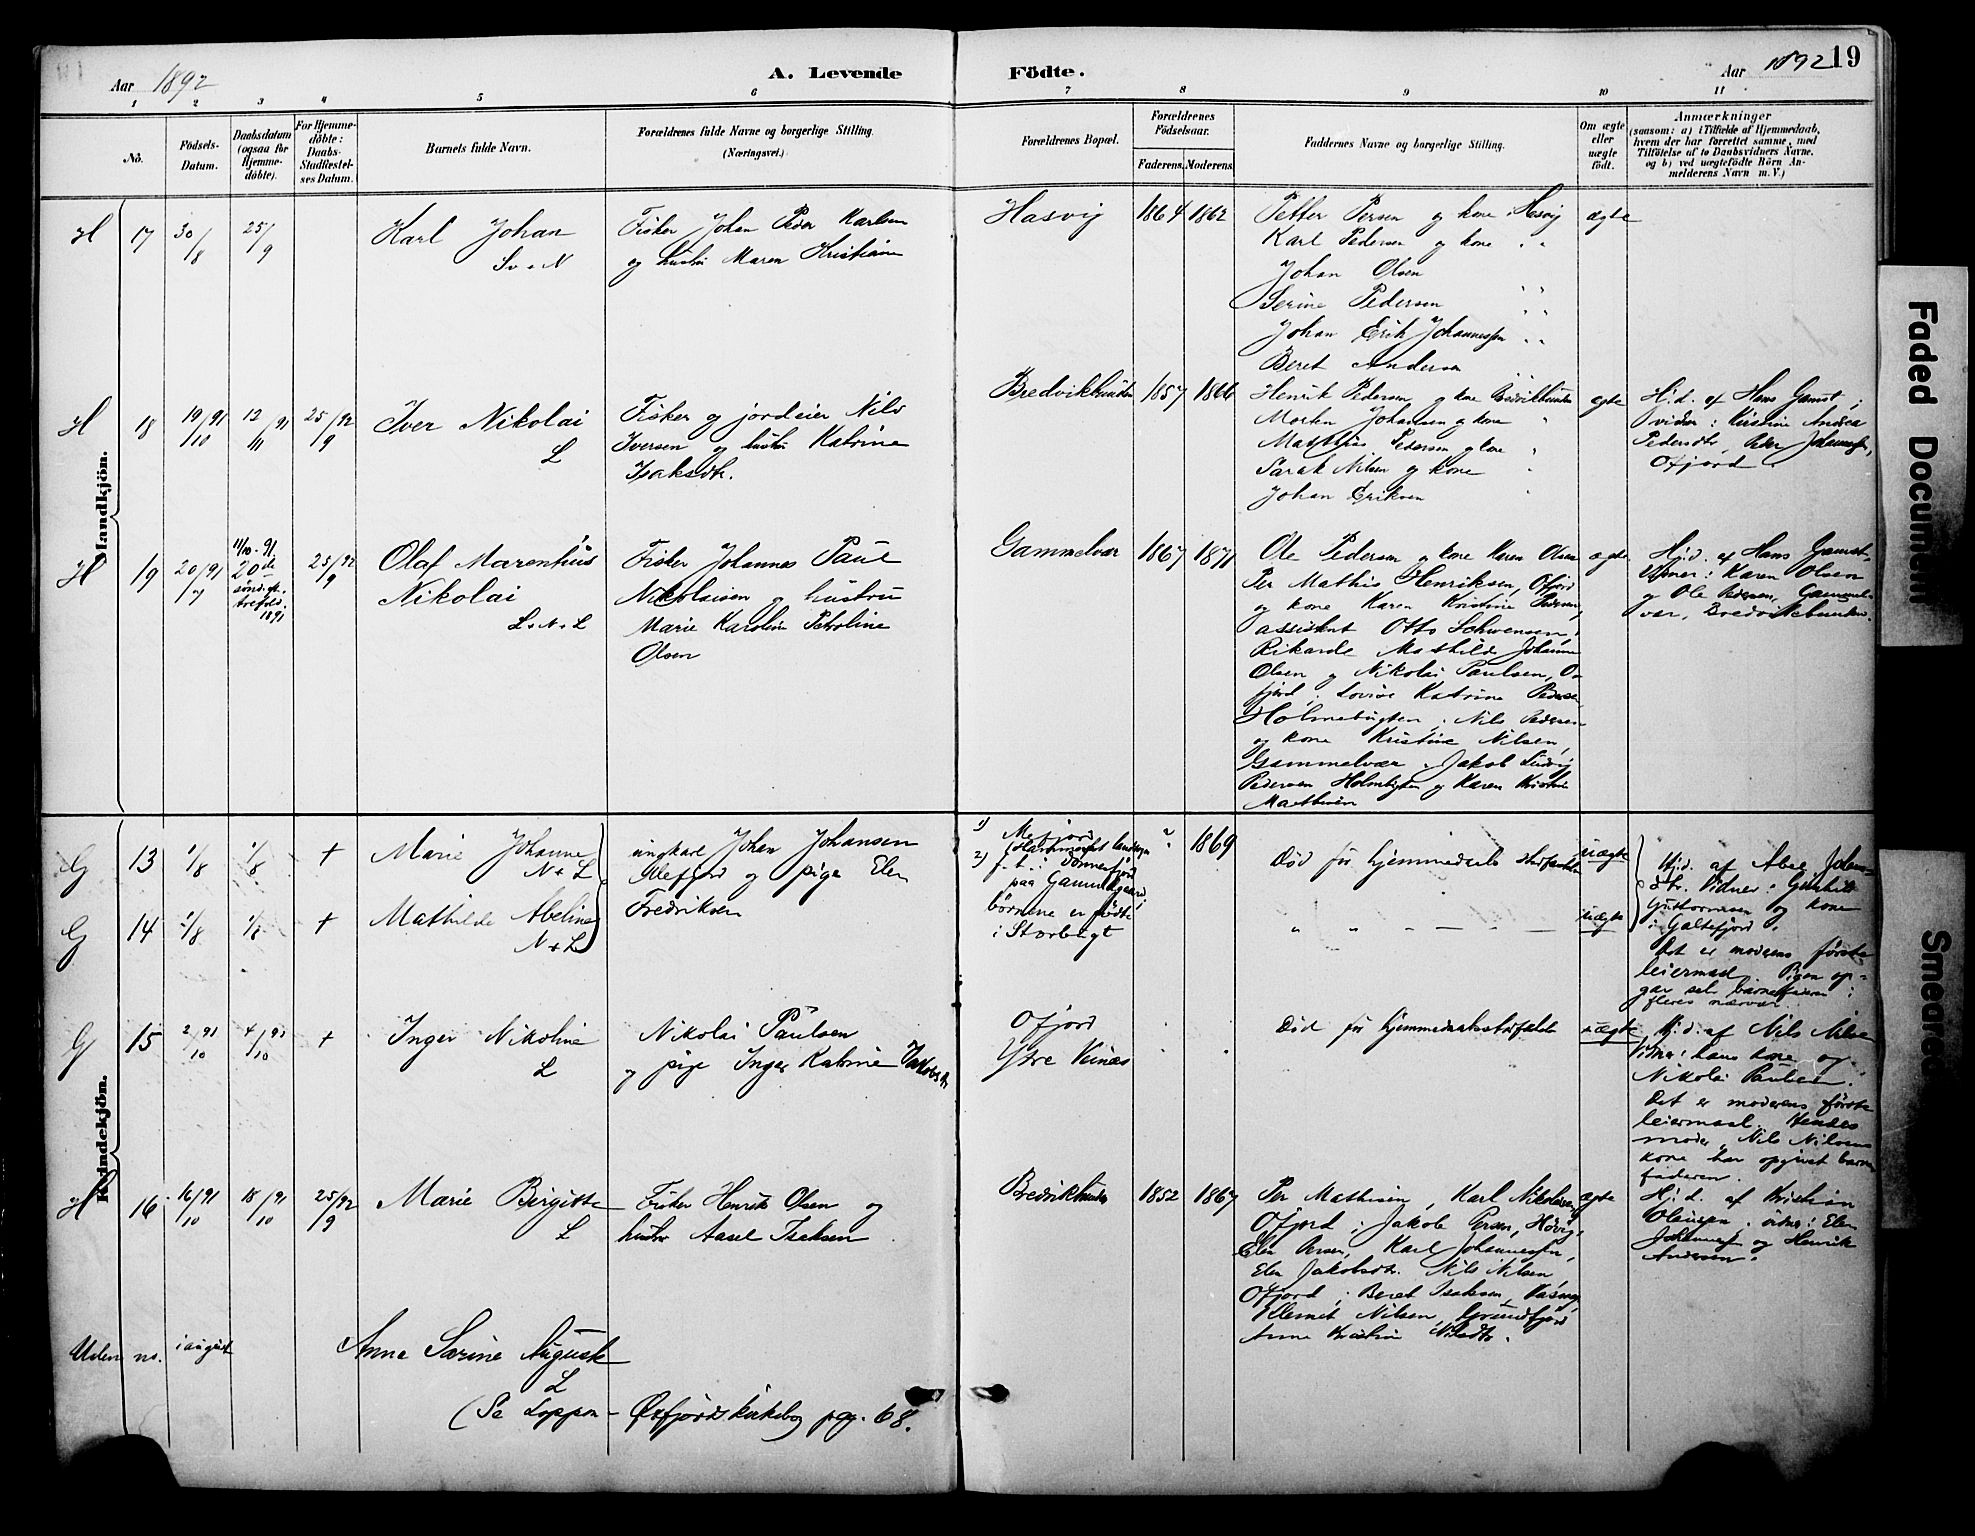 Aar 1892
A. Levende Födte.
Aar 1892
19
1 2 3 4 5 6 7 8 9 10 11
No.
Födsels-Datum.
Daabsdatum (ogsaa for Hjemme-döbte).
For Hjemme-döbte: Daabs-Stadfæstel-ses Datum.
Barnets fulde Navn.
Forældrenes fulde Navne og borgerlige Stilling.
(Næringsvei.)
Forældrenes Bopæl.
Forældrenes Födselsaar.
Faderens. Moderens.
Faddernes Navne og borgerlige Stilling.
Om ægte eller uægte födt.
Anmærkninger
(saasom: a) i Tilfælde af Hjemmedaab,
hvem der har forrettet samme, med
Tilföielse af to Daabsvidners Navne,
og b) ved uægtefödte Börn An-
melderens Navn m. V.)
Mandkjön.
H 17 30/8 25/9 Karl Johan
Sv + N
Fisker Johan Peder Karlsen
og hustru Maren Kristiane
Hasvig 1864 1862
Petter Persen og kone, Hasvig
Karl Pedersen og kone " "
Johan Olsen
Serine Pedersen " "
Johan Erik Johannessen " "
Beret Andersen
ægte
H 18 19/10 91 12/11 91 25/9 92 Iver Nikolai
L
Fisker og jordeier Nils
Iversen og hustru Katrine
Isaksdtr.
Bredvikbunden 1857 1866
Henrik Pedersen og kone Bredvikbunden
Morten Johansen og kone "
Matthis Pedersen og kone "
Sarak Nilsen og kone "
Johan Eriksen "
ægte
Hj.d. af Hans Gamst;
vidner: Kirstine Andrea
Pedersdtr, Peder Johannesen,
Ofjord.
H 19 20/7 91 11/10-91. 20de sönd. eft. trefold. 1891 25/9 92 Olaf Marenhius
Nikolai
L + N + L
Fisker Johannes Paul
Nikolaisen og hustru
Marie Karoline Petroline
Olsen
Gammelvær 1867 1871
Ole Pedersen og kone Karen Olsen
Per Mathis Henriksen, Ofjord
og kone Karen Kristine Pedersen
assistent Otto Schwensen,
Rikarde Mathilde Johanne
Olsen og Nikolai Paulsen, O-
fjord; Lovise Katrine Pedersen
Holmebugten; Nils Pedersen
og kone Kristine Nilsen,
Gammelvær. Jakob Ludvig
Pedersen Holmbugten og Karen Kristine
Mathisen
ægte
Hj.d. af Hans Gamst.
Vidner: Karen Olsen
og Ole Pedersen, Gammel-
vær, Bredvikbunden.
Kvindekjön.
G 13 1/8 1/8 + Marie Johanne
N + L
ungkarl Johan Johansen
Mefjord og pige Elen
Fredriksen
1) Mefjord
2) f. t. i Dönnesfjord
paa Gammelgaard;
börnene er födte
i Storbugt
" 1869
Död för hjemmedaabs stadfæstelse
uægte
Hj.d. af Abel Johans-
dtr. Vidner: Gunhild
Guttormsen og kone
i Galtefjord.
Det er moderens förste
leiermaal. Pigen op-
gav selv barnefaderen i
fleres nærvær.
G 14 1/8 1/8 + Mathilde Abeline
N + L
" " " — " — " — uægte
G 15 2/10 91 4/10 91 + Inger Nikoline
L
Nikolai Paulsen
og pige Inger Katrine Jakobsdtr
Ofjord
Ytre Veinæs
Död för hjemmedaabsstadfæstelse
uægte
Hj.d. af Nils Nilsen
Vidner: hans kone og
Nikolai Paulsen.
Det er moderens förste
leiermaal. Hendes
moder, Nils Nilsens
kone har opgivet barne-
faderen.
H 16 16/10 91 18/10 91 25/9 92 Marie Birgitte
L
Fisker Henrik Olsen og
hustru Aasel Isaksen
Bredvikbunden 1852 1867
Per Mathisen, Karl Nikolaisen,
Ofjord; Jakob Persen, Hasvig,
Elen Persen, Karl Johannessen,
Elen Jakobsdtr. Nils Nilsen
Ofjord; Beret Isaksen,
Klemet Nilsen, Grundfjord
Anne Kristine Nilsdtr.
ægte
Hj.d. af Kristian
Olausen; vidner: Elen
Johannessen og Henrik
Andersen.
Uden no. i august Anna Sarine Auguste
L
(Se Loppen - Öxfjords kirkebog pag. 68.
Faded Document
Smeared